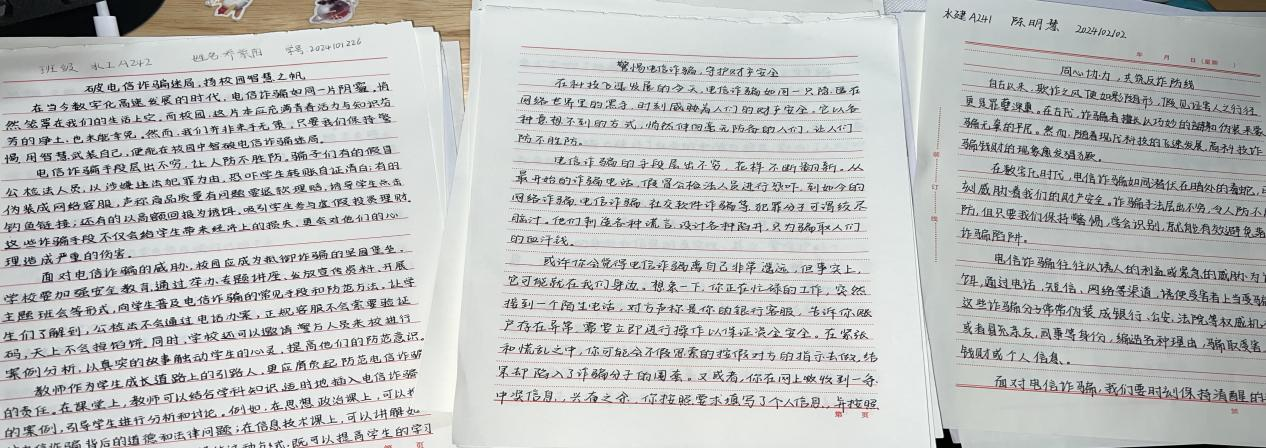 班级 水工A242 姓名 乔紫阳 学号 2024101226
破电信诈骗迷局,扬校园智慧之帆
在当今数字化高速发展的时代,电信诈骗如同一片阴霾,悄
然笼罩在我们的生活上空。而校园,这片本应充满青春活力与知识芬
芳的净土,也未能幸免。然而,我们并非束手无策,只要我们保持警
惕,用智慧武装自己,便能在校园中智破电信诈骗迷局。
电信诈骗手段层出不穷,让人防不胜防。骗子们有的假冒
公检法人员,以涉嫌违法犯罪为由,恐吓学生转账自证清白;有的
伪装成网络客服,声称商品质量有问题需退款理赔,诱导学生点击
钓鱼链接;还有的以高额回报为诱饵,吸引学生参与虚假投资理财。
这些诈骗手段不仅会给学生带来经济上的损失,更会对他们的心
理造成严重的伤害。
面对电信诈骗的威胁,校园应成为抵御诈骗的坚固堡垒。
学校要加强安全教育,通过举办专题讲座、发放宣传资料、开展
主题班会等形式,向学生普及电信诈骗的常见手段和防范方法,让学
生们了解到,公检法不会通过电话办案,正规客服不会索要验证
码,天上不会掉馅饼。同时,学校还可以邀请警务人员来校进行
案例分析,以真实的故事触动学生的心灵,提高他们的防范意识。
教师作为学生成长道路上的引路人,更应肩负起防范电信诈骗
的责任。在课堂上,教师可以结合学科知识,适时地插入电信诈骗
的案例,引导学生进行分析和讨论。例如,在思想政治课上,可以
电信诈骗背后的道德和法律问题;在信息技术课上,可以讲解如
活动方式,既可以提高学生的学习
警惕电信诈骗,守护财产安全
在科技飞速发展的今天,电信诈骗如同一只隐匿在
网络世界里的黑手,时刻威胁着人们的财产安全。它以各
种意想不到的方式,悄然伸向毫无防备的人们,让人们
防不胜防。
电信诈骗的手段层出不穷,花样不断翻新。从
最开始的诈骗电话,假冒公检法人员进行恐吓,到如今的
网络诈骗,电信诈骗,社交软件诈骗等,犯罪分子可谓绞尽
脑汁。他们制造各种谎言,设计各种陷阱,只为骗取人们
的血汗钱。
或许你会觉得电信诈骗离自己非常遥远,但事实上,
它可能就在我们身边。想象一下,你正在忙碌的工作,突然
接到一个陌生电话,对方声称是你的银行客服,告诉你账
户存在异常,需要立即进行操作以保证资金安全。在紧张
和慌乱之中,你可能会不假思索的按假对方的指示去做,结
果却陷入了诈骗分子的圈套。又或者,你在网上收到一条
中奖信息,兴奋之余,你按照要求填写了个人信息,并按照
第 页
水建A241 陈明慧 202402102
年 月 日(星期 )
同心协力,共筑反诈防线
自古以来,欺诈之风便如影随形,假见证害人之行径
更是罪孽深重。在古代,诈骗者擅长以巧妙的辞和伪装来蒙
骗无辜的平民。然而,随着现代科技的飞速发展,高科技诈
骗钱财的现象愈发猖獗。
在数字化时代,电信诈骗如同潜伏在暗处的毒蛇,
刻威胁着我们的财产安全。诈骗手法层出不穷,令人防不
防,但只要我们保持警惕,学会识别,就能有效避免
诈骗陷阱。
电信诈骗往往以诱人的利益或紧急的威胁为
饵,通过电话、短信、网络等渠道,诱使受害者上当受骗
这些诈骗分子常常伪装成银行、公安、法院等权威机
或者是亲友、同事等身份,编造各种理由,骗取受害
钱财或个人信息。
面对电信诈骗,我们要时刻保持清醒的
装
订
线
第